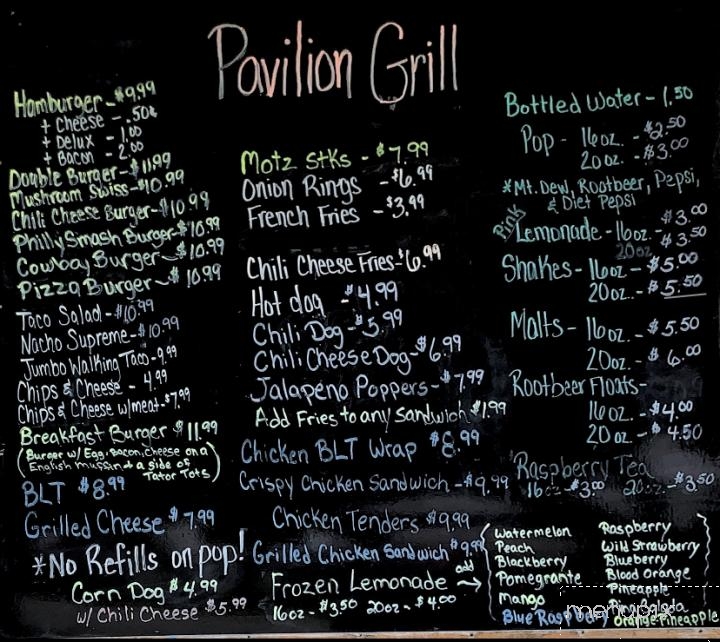 Pavilion Grill
Hamburger - $9.99
+ Cheese - .50¢
+ Delux - 1.00
+ Bacon - 2.00
Double Burger - $11.99
Mushroom Swiss - $10.99
Chili Cheese Burger - $10.99
Philly Smash Burger - $10.99
Cowboy Burger - $10.99
Pizza Burger - $10.99
Taco Salad - $10.99
Nacho Supreme - $10.99
Jumbo Walking Taco - 9.99
Chips & Cheese - 4.99
Chips & Cheese w/meat - $7.99
Breakfast Burger $11.99
(Burger w/ Egg, bacon, cheese on a
English muffin & a side of
Tator Tots)
BLT $8.99
Grilled Cheese $7.99
*No Refills on pop!
Corn Dog $4.99
w/ Chili Cheese $5.99
Motz Stks - $7.99
Onion Rings - $6.99
French Fries - $3.99
Chili Cheese Fries - $6.99
Hot dog - $4.99
Chili Dog - $5.99
Chili Cheese Dog - $6.99
Jalapeno Poppers - $7.99
Add Fries to any Sandwich $1.99
Chicken BLT Wrap $8.99
Crispy Chicken Sandwich - $9.99
Chicken Tenders $9.99
Grilled Chicken Sandwich $9.99
Frozen Lemonade add →
16oz - $3.50 20oz - $4.00
Bottled Water - 1.50
Pop - 16oz. - $2.50
20oz. - $3.00
*Mt. Dew, Rootbeer, Pepsi,
& Diet Pepsi
Pink Lemonade - 16oz - $3.00
20oz - $3.50
Shakes - 16oz - $5.00
20oz. - $5.50
Malts - 16oz. - $5.50
20oz. - $6.00
Rootbeer Floats -
16oz - $4.00
20oz - $4.50
Raspberry Tea
16oz - $3.00 20oz. - $3.50
Watermelon
Peach
Blackberry
Pomegrante
Mango
Blue Raspberry
Raspberry
Wild Strawberry
Blueberry
Blood Orange
Pineapple
Orange Pineapple